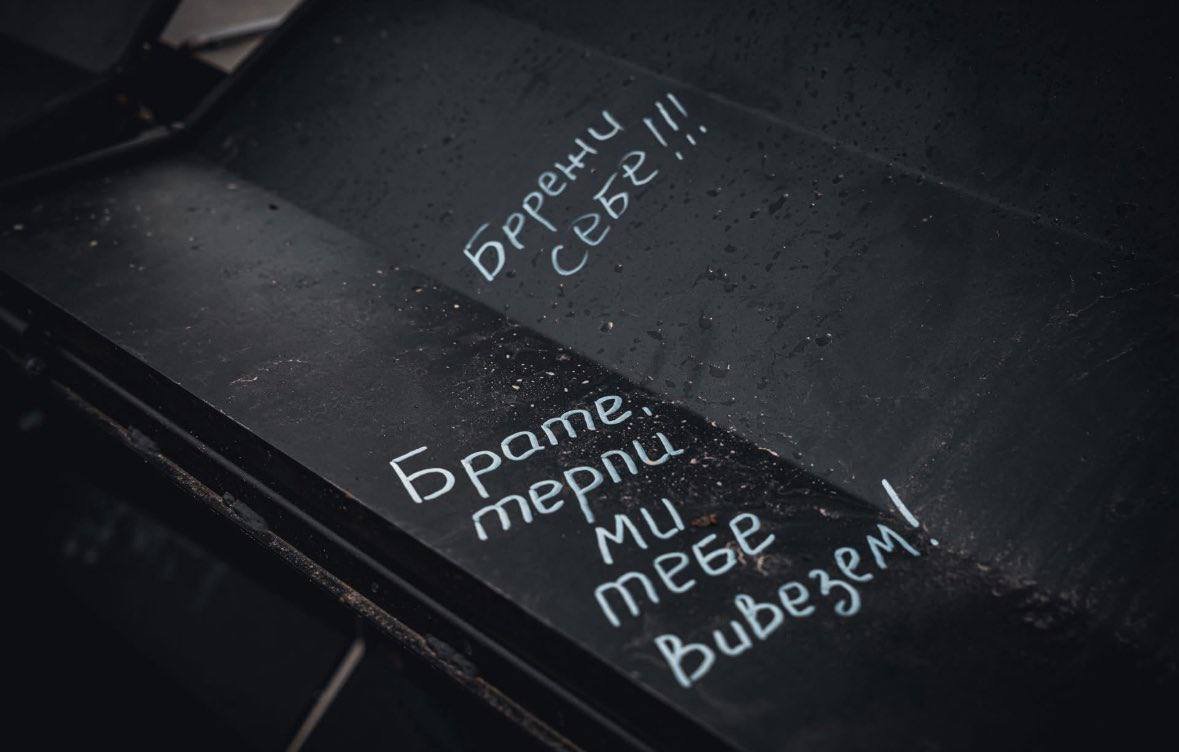 Бррежи
СЕБЕ!!!
Брате,
терпи
ми
тебе
вивезем!